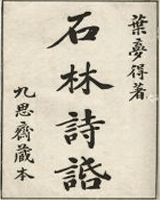 葉夢得著
石林詩話
九思齋藏本